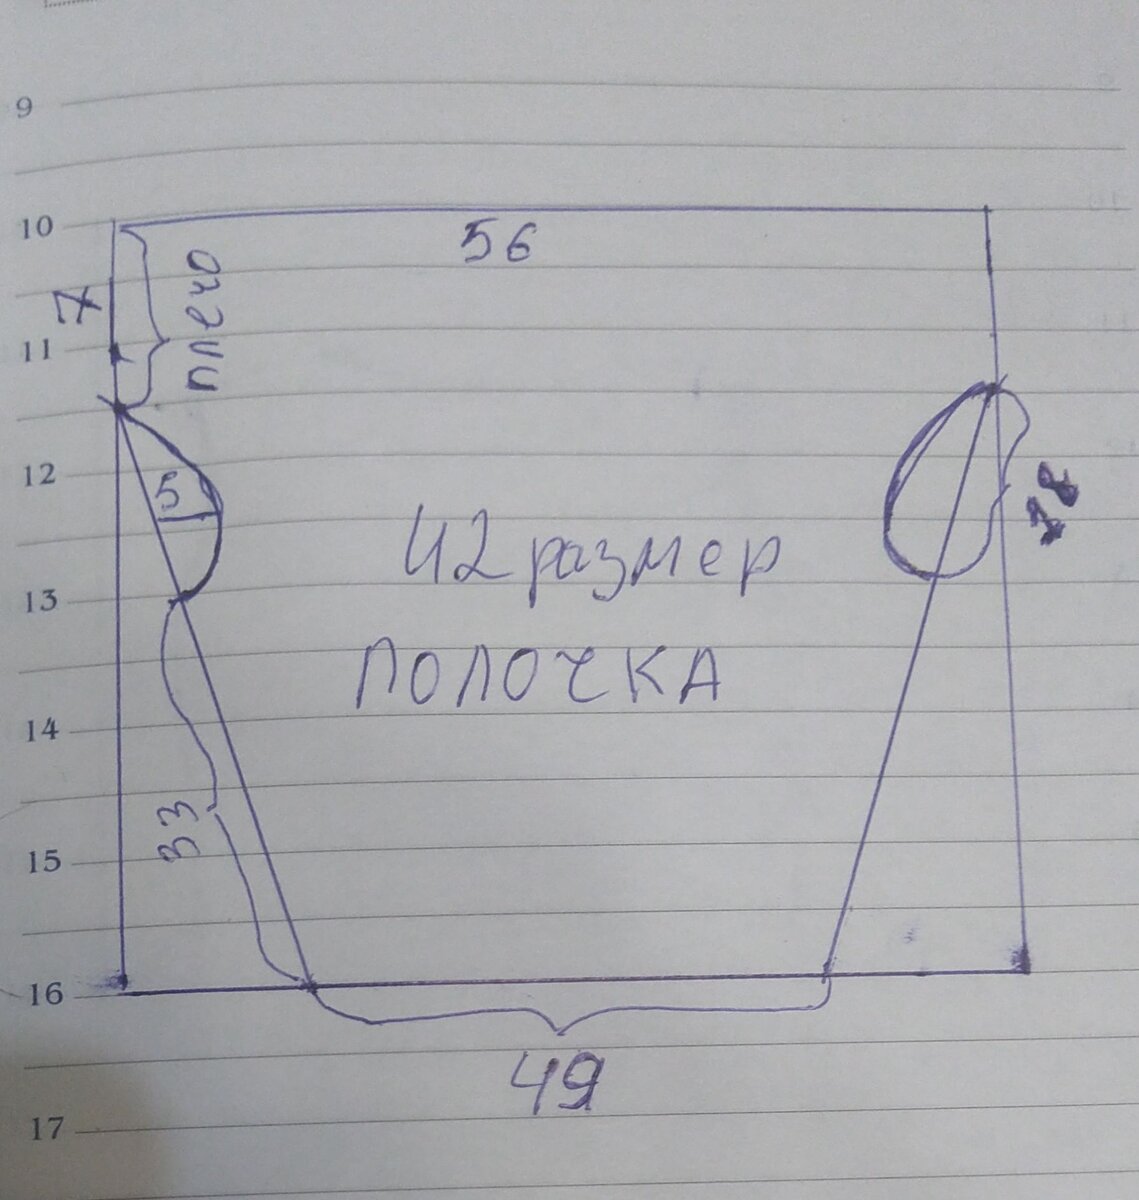 9
10
56
7
плечо
11
12
5
18
42 размер
13
ПОЛОЧКА
14
33
15
16
49
17